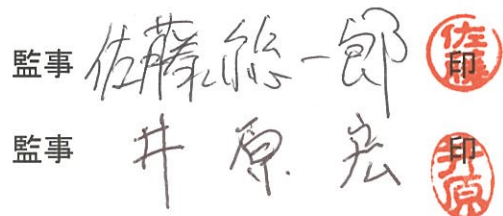 監事 佐藤総一郎 印 佐藤
監事 井原宏 印 井原